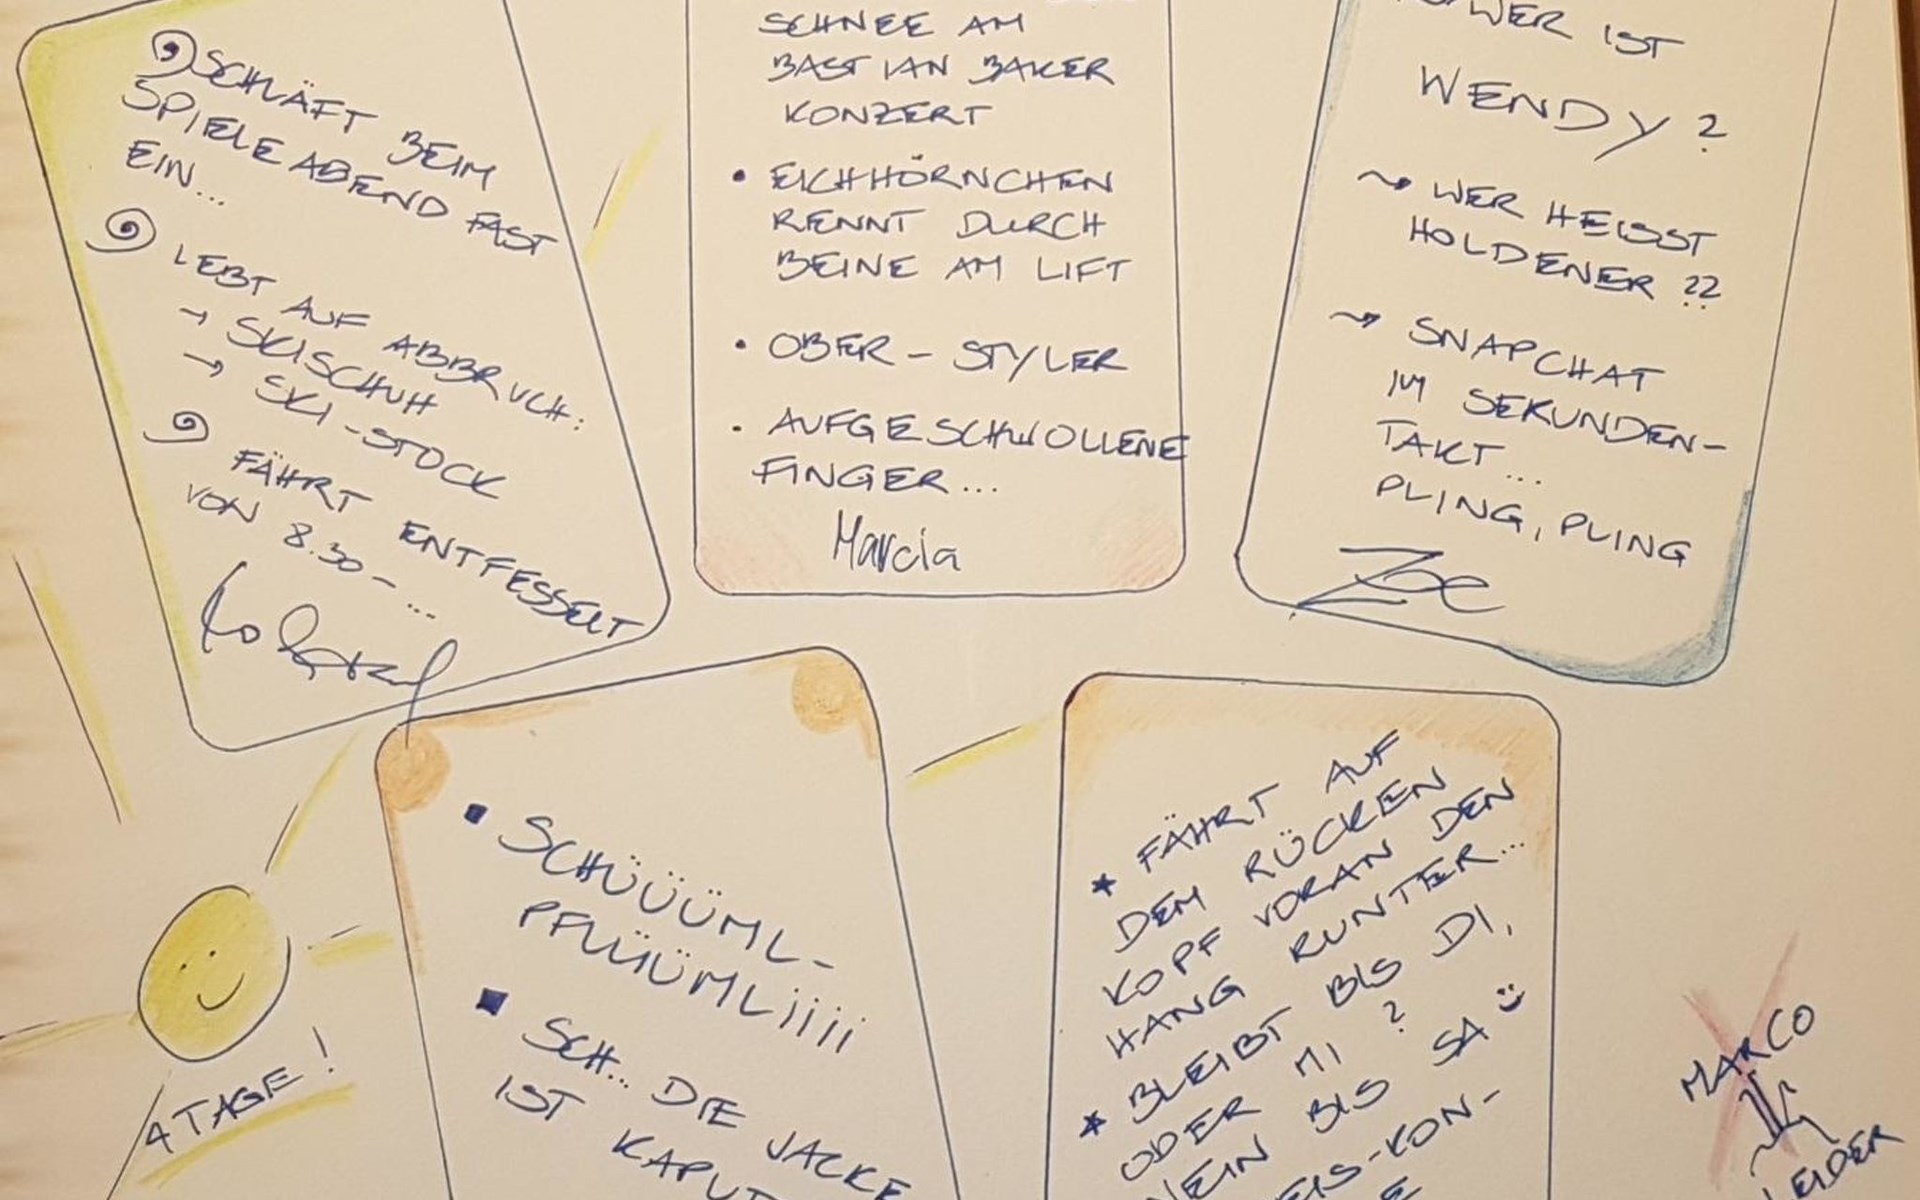 SCHLÄFT BEIM
SPIELEABEND FAST
EIN...
LEBT AUF ABBRUCH:
→ SKISCHUH
→ SKI-STOCK
FÄHRT ENTFESSELT
VON 8.30 - ...
SCHNEE AM
BASTIAN BAKER
KONZERT
• EICHHÖRNCHEN
RENNT DURCH
BEINE AM LIFT
• OBER-STYLER
• AUFGESCHWOLLENE
FINGER...
Marcia
WER IST
WENDY?
WER HEISST
HOLDENER??
SNAPCHAT
IM SEKUNDEN-
TAKT...
PLING, PLING
Zoe
4 TAGE!
SCHÜÜÜML-
PFLÜÜÜMLiiii
SCH... DIE JACKE
IST KAPUT
* FÄHRT AUF
DEM RÜCKEN
KOPF VORAN DEN
HANG RUNTER...
* BLEIBT BIS DI,
ODER MI ?
NEIN BIS SA
EIS-KON-
MARCO
LEIDER